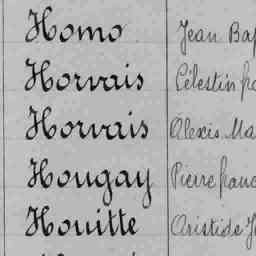 Homo Jean Bap
Horvais Célestin fra
Horvais Alexis Ma
Hougay Pierre franc
Houitte Aristide J